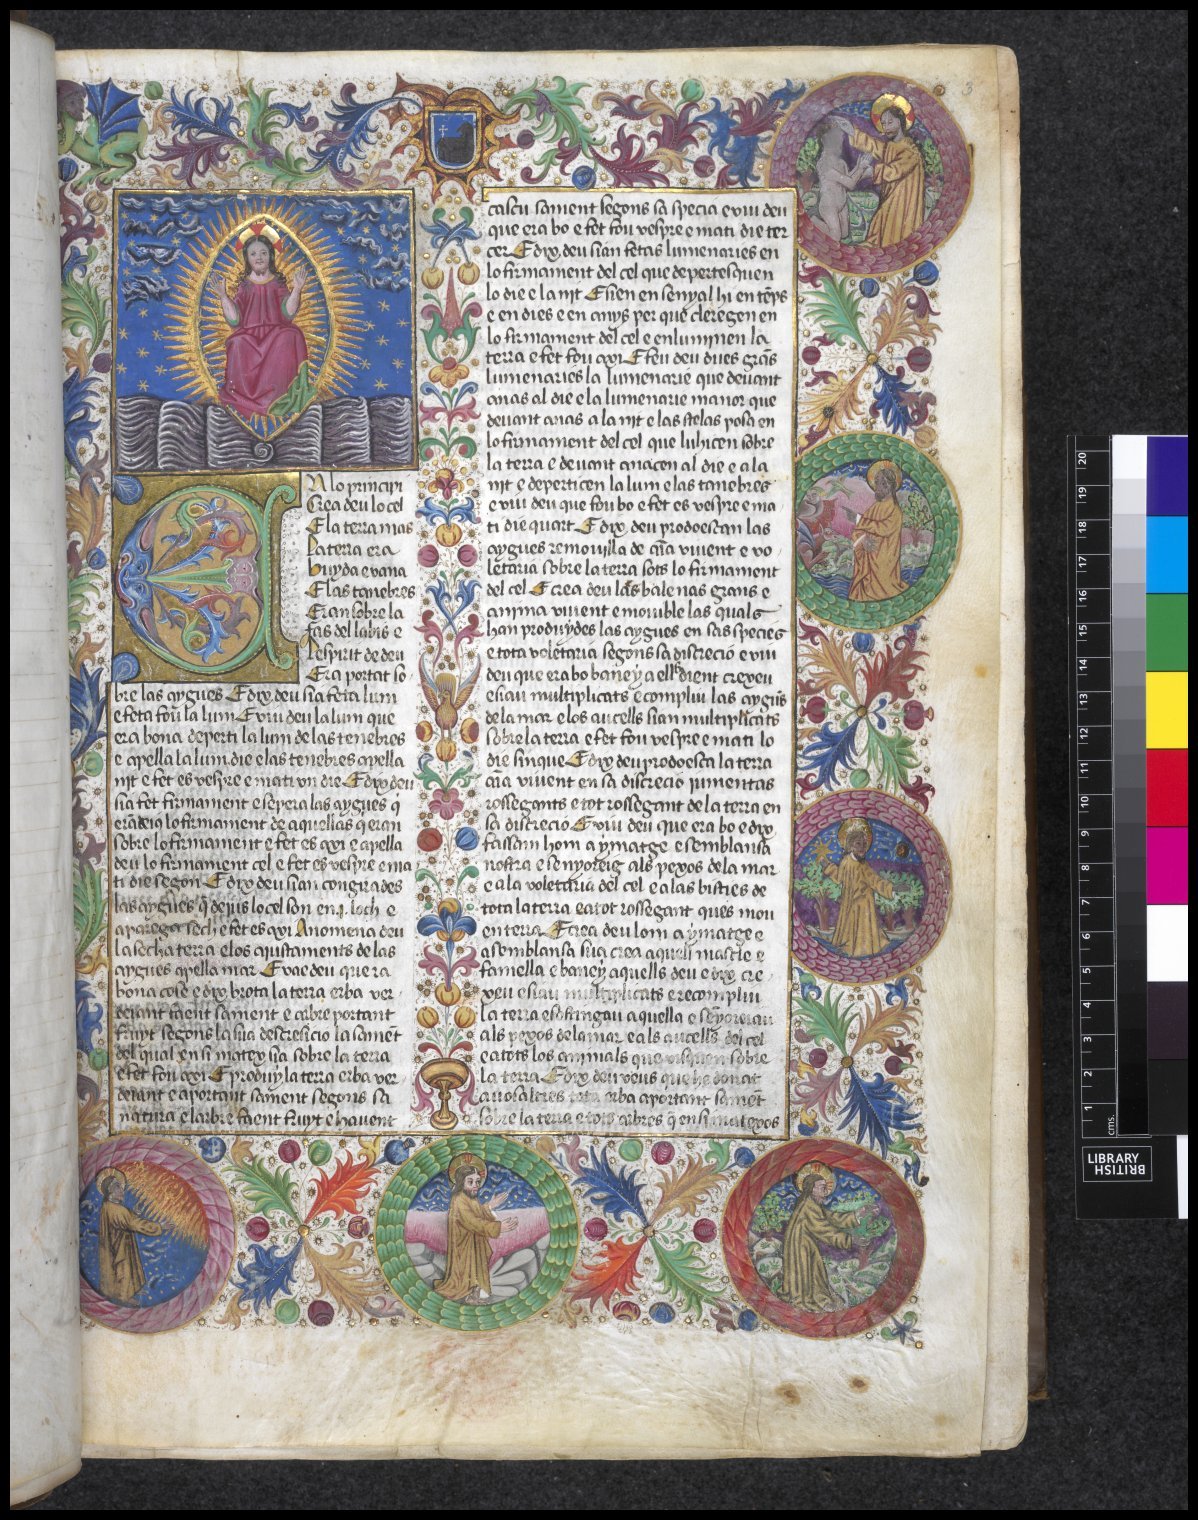 3
N lo principi
Crea deu lo cel
E la terra mas
La terra era
buyda e vana
E las tanebres
Eran sobre la
fas del labis e
Lespirit de deu
Era portat so
bre las aygues E dix deu sia feta lum
e feta fou la lum E viu deu la lum que
era bona departi la lum de las tenebres
e apella la lum die e las tenebres apella
nit e fet es vespre e mati vn die E dix deu
sia fet firmament e sepera las aygues q̄
erā deiq lo firmament de aquellas q̄ eran
sobre lo firmament e fet es axi e apella
deu lo firmament cel e fet es vespre e ma
ti die segon E dix deu sian congrades
las aygues q̄ dejus lo cel son en .j. loch e
aparega sech e fet es axi Anomena deu
la secha terra e los ajustaments de las
aygues apella mar E vae deu que ra
bona cose e dix brota la terra erba ver
dejant faent sament e arbre portant
fruyt segons la sua descresicio la samēt
del qual en si matex sia sobre la terra
e fet fou axi E produy la terra erba ver
dejant e aportant sament segons sa
natura e larbre faent fruyt e hauent
cascu sament segons sa specia e viu deu
que era bo e fet fou vespre e mati die ter
cer E dix deu sian fetas lumenaries en
lo firmament del cel que departesquen
lo die e la nit E sien en senyal hi en tēps
e en dies e en anys per que cleregen en
lo firmament del cel e enluminen la
terra e fet fou axi E feu deu dues grās
lumenaries la lumenarie que deuant
anas al die e la lumenarie manor que
deuant anas a la nit e las stelas posa en
lo firmament del cel que luhicen sobre
la terra e deuant anacen al die e a la
nit e deperticen la lum e las tanebres
e viu deu que fou bo e fet es vespre e ma
ti die quart E dix deu prodoescan las
aygues remouilla de aīa vivent e vo
letaria sobre la terra sots lo firmament
del cel E crea deu las balenas grans e
anima vivent e mouible las quals
han produydes las aygues en sas species
e tota voletaria segons sa discrecio e viu
deu que era bo baney a ells dient crexeu
e siau multiplicats e compliu las aygues
de la mar e los aucells sian multiplicats
sobre la terra e fet fou vespre e mati lo
die sinque E dix deu prodoesca la terra
aīa vivent en sa discrecio jumentas
rossegants e tot rossegant de la terra en
sa discrecio E viu deu que era bo e dix
fassam hom a ymatge e semblansa
nostra e senyoreig als pexos de la mar
e a la voletaria del cel e a las bisties de
tota la terra e a tot rossegant ques mou
en terra E crea deu lom a ymatge e
a semblansa sua crea aquell mascle e
famella e baney aquells deu e dix cre
xeu e siau multiplicats e recompliu
la terra e sostringau aquella e senyoreiau
als pexos de la mar e als aucells del cel
e a tots los animals que visquen sobre
la terra E dix deu veus que he donat
a uosaltres tota erba aportant samēt
sobre la terra e tots arbres q̄ en si matexos
20
19
18
17
16
15
14
13
12
11
10
9
8
7
6
5
4
3
2
1
cms.
BRITISH
LIBRARY